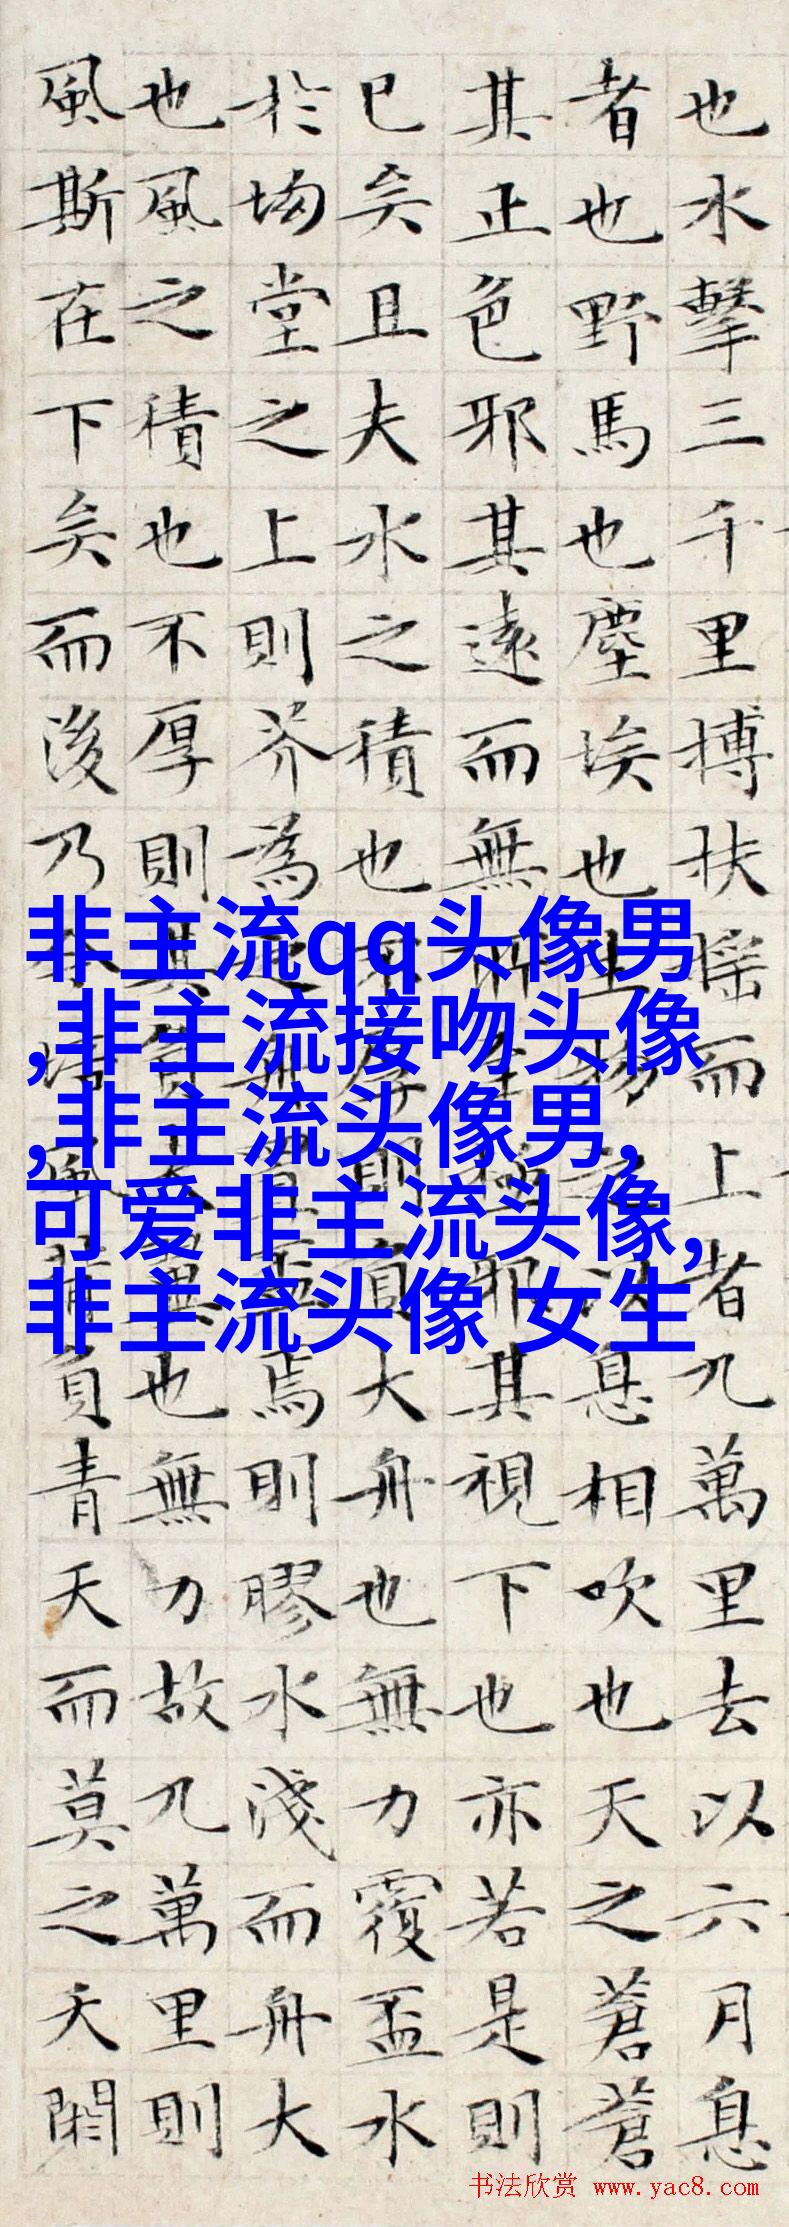 也水擊三千里搏扶摇而上者九萬里去以六月息
者也野馬也塵埃也生物之以息相吹也天之蒼蒼
其正色邪其遠而無所至極邪其視下也亦若是則
已矣且夫水之積也不厚則負大舟也無力覆盃水
於坳堂之上則芥為之舟置盃焉則膠水淺而舟大
也風之積也不厚則其負大翼也無力故九萬里則
風斯在下矣而後乃今培風背負青天而莫之夭閼
非主流qq头像男
,非主流接吻头像
,非主流头像男,
可爱非主流头像,
非主流头像 女生
书法欣赏 www.yac8.com